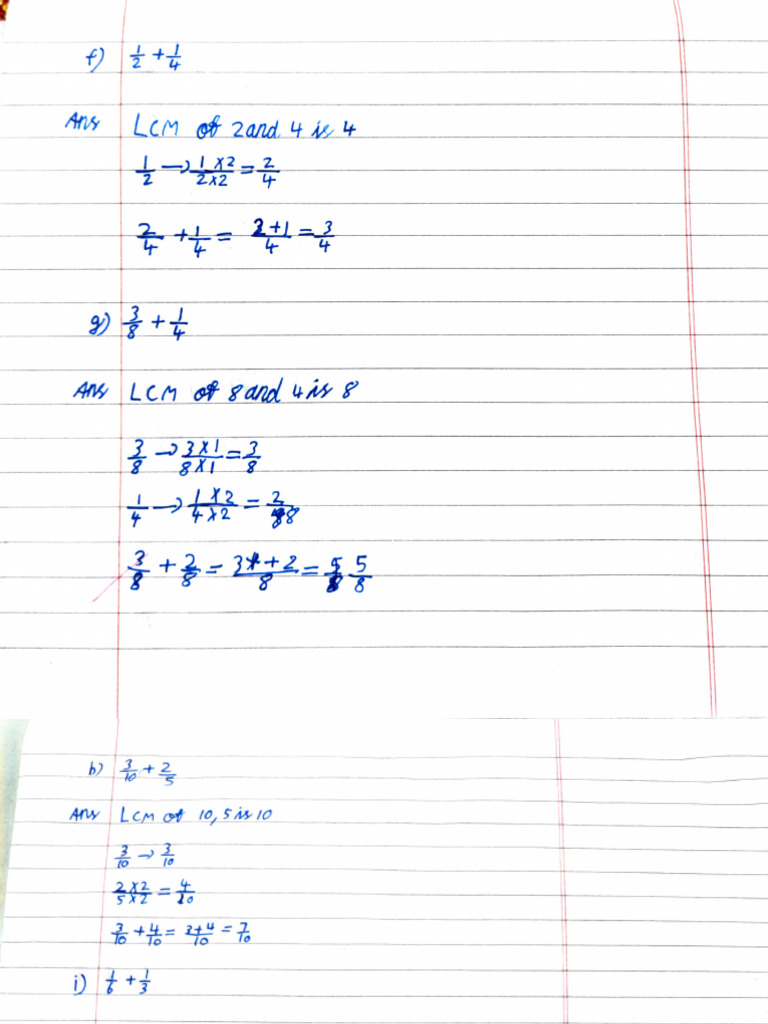 f) 1/2 + 1/4
Ans LCM of 2 and 4 is 4
1/2 → 1×2/2×2 = 2/4
2/4 + 1/4 = 2+1/4 = 3/4
g) 3/8 + 1/4
Ans LCM of 8 and 4 is 8
3/8 → 3×1/8×1 = 3/8
1/4 → 1×2/4×2 = 2/8
3/8 + 2/8 = 3+2/8 = 5/8 5/8
h) 3/10 + 2/5
Ans LCM of 10, 5 is 10
3/10 → 3/10
2×2/5×2 = 4/10
3/10 + 4/10 = 3+4/10 = 7/10
i) 1/6 + 1/3